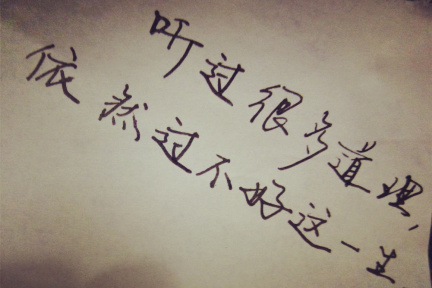 听过很多道理,
依然过不好这一生